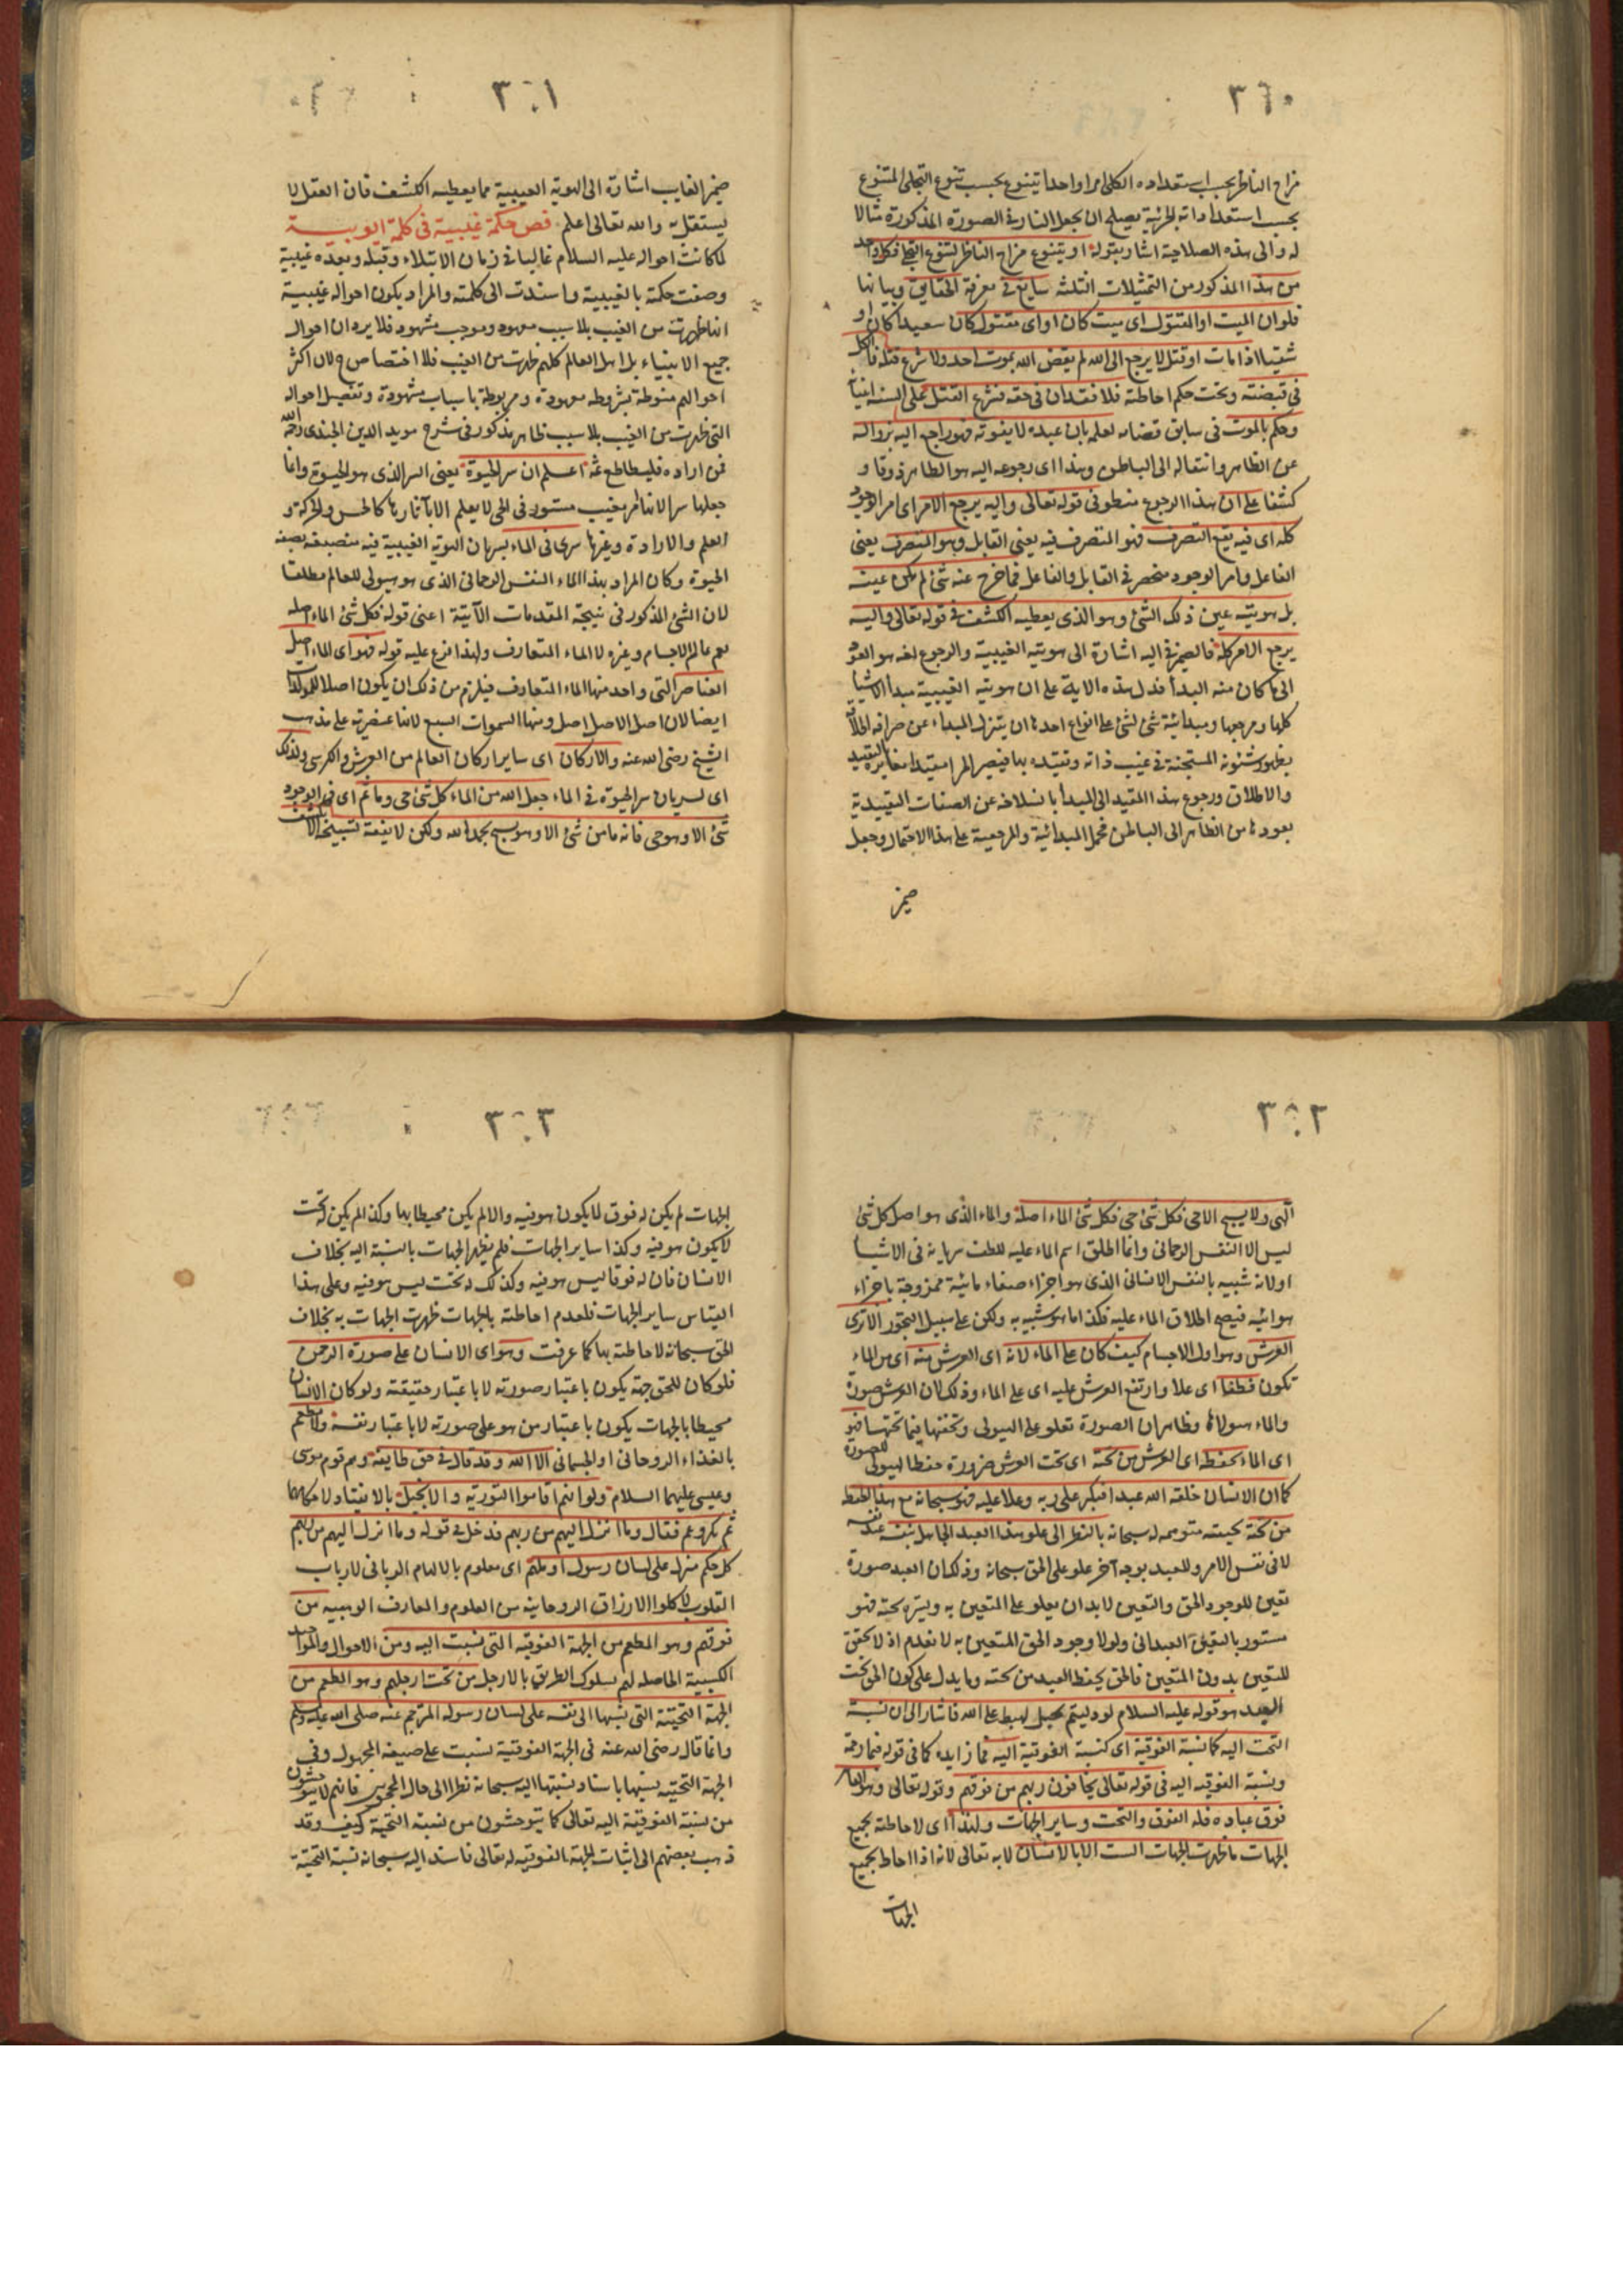 ٣٦٠
مزاج الناظر بحسب استعداده الكلى امرا واحدا يتنوع بحسب تنوع التجلى المتنوع
بحسب استعداداته الجزئية يصلح ان يجعل النار فى الصورة المذكورة مثالا
له والى هذه الصلاحية اشار بقوله او يتنوع مزاج الناظر لتنوع التجلى فكل واحد
من هذا المذكور من التمثيلات الثلثة سايغ فى معرفة الحقايق وبيانها
فلو ان الميت او المقتول اى ميت كان او اى مقتول كان سعيدا كان او
شقيا اذا مات او قتل لا يرجع الى الله لم يقض الله بموت احد ولا شرع قتله فالكل
فى قبضته وتحت حكم احاطته فلا فقدان فى حقه فشرع القتل على السنة انبيائه
وحكم بالموت فى سابق قضائه لعلمه بان عبده لا يفوته فهو راجع اليه بزواله
عن الظاهر وانتقاله الى الباطن وهذا اى رجوعه اليه هو الظاهر ذوقا و
كشفا على ان هذا الرجوع منطو فى قوله تعالى واليه يرجع الامر اى امر الوجود
كله اى فيه يقع التصرف فهو المتصرف فيه يعنى القابل وهو المتصرف يعنى
الفاعل وامر الوجود منحصر فى القابل والفاعل فما خرج عنه شئ لم يكن عينه
بل هويته عين ذلك الشئ وهو الذى يعطيه الكشف فى قوله تعالى واليه
يرجع الامر كله فالضمير فى اليه اشارة الى هويته الغيبية والرجوع لغة هو العود
الى ما كان منه البدأ فدل هذه الاية على ان هويته الغيبية مبدأ الاشيا
كلها ومرجعها ومبدائية شئ لشئ على انواع احدها ان يتنزل المبداء عن صرافة اطلاقه
بظهور شئونه المستجنة فى غيب ذاته وتقيده بها فيصير امرا مقيدا مغايرا بالتقييد
والاطلاق ورجوع هذا المقيد الى المبدأ بانسلاخه عن الصفات التقييدية
بعوده من الظاهر الى الباطن فحمل المبدائية والمرجعية على هذا الاحتمال وجعل
ضمير
٣٦١
ضمير الغايب اشارة الى الهوية الغيبية مما يعطيه الكشف فان العقل لا
يستقل به والله تعالى اعلم فص حكمة غيبية فى كلمة ايوبية
لما كانت احواله عليه السلام غالبا فى زمان الابتلاء وقبله وبعده غيبية
وصفت حكمته بالغيبية واسندت الى كلمته والمراد بكون احواله غيبية
انها ظهرت من الغيب بلا سبب معهود وموجب مشهود فلا يرد ان احوال
جميع الانبياء بل اهل العالم كلهم ظهرت من الغيب فلا اختصاص ح لان اكثر
احوالهم منوطة بشروط معهودة ومربوطة باسباب مشهودة وتفصيل احواله
التى ظهرت من الغيب بلا سبب ظاهر مذكور فى شرح مويد الدين الجندى رحمه الله
فمن اراده فليطالع ثمة اعلم ان سر الحيوة يعنى السر الذى هو الحيوة وانما
جعلها سرا لانها امر مغيب مستور فى الحى لا يعلم الا بآثارها كالحس والحركة و
العلم والارادة وغيرها سرى فى الماء بسريان الهوية الغيبية فيه منصبغة بصفة
الحيوة وكان المراد بهذا الماء النفس الرحمانى الذى هو هيولى للعالم مطلقا
لان الشئ المذكور فى نتيجة المقدمات الآتية اعنى قوله فكل شئ الماء اصله
يعم عالم الاجسام وغيره لا الماء المتعارف ولهذا فرع عليه قوله فهو اى الماء اصل
العناصر التى واحد منها الماء المتعارف فيلزم من ذلك ان يكون اصلا للمولدات
ايضا لان اصل الاصل اصل ومنها السموات السبع لانها عنصرية على مذهب
الشيخ رضى الله عنه والاركان اى ساير اركان العالم من العرش والكرسى ولذلك
اى لسريان سر الحيوة فى الماء جعل الله من الماء كل شئ حى وما ثم اى فى الوجود
شئ الا وهو حى فانه ما من شئ الا وهو يسبح بحمد الله ولكن لا يفقه تسبيحه الا بكشف
٣٦٢
الهى ولا يسبح الا حى فكل شئ حى فكل شئ الماء اصله والماء الذى هو اصل كل شئ
ليس الا النفس الرحمانى وانما اطلق اسم الماء عليه للطف سريانه فى الاشيا
او لانه شبيه بالنفس الانسانى الذى هو اجزاء صغار مائية ممزوجة باجزاء
هوائيه فيصح اطلاق الماء عليه فكذا ما هو شبيه به ولكن على سبيل التجوز الا ترى
العرش وهو اول الاجسام كيف كان على الماء لانه اى العرش منه اى من الماء
تكون فطفا اى علا وارتفع العرش عليه اى على الماء وذلك لان العرش صورة
والماء هيولاها وظاهر ان الصورة تعلو على الهيولى وتخفيها فيما تحتها فهو
اى الماء يحفظه اى العرش من تحته اى تحت العرش ضرورة حفظ الهيولى للصورة
كما ان الانسان خلقه الله عبدا فتكبر على ربه وعلا عليه فهو سبحانه مع هذا يحفظه
من تحته بحيثه متوهمه له سبحانه بالنظر الى علو هذا العبد الجاهل بنفسه عند نفسه
لا فى نفس الامر وللعبد بوجه آخر علو على الحق سبحانه وذلك ان العبد صورة
تعين للوجود الحق والتعين لا بد ان يعلو على المتعين به ويستره تحته فهو
مستور بالتعين العبدانى ولولا وجود الحق المتعين به لانعدم اذ لا تحقق
للتعين بدون المتعين فالحق يحفظ العبد من تحته وما يدل على كون الحق تحت
العبد هو قوله عليه السلام لو دليتم بحبل لهبط على الله فاشار الى ان نسبة
التحت اليه كما نسبة الفوقية اى كنسبة الفوقية اليه فما زايدة كما فى قوله فبما رحمة
ونسبة الفوقيه اليه فى قوله تعالى يخافون ربهم من فوقهم وقوله تعالى وهو القاهر
فوق عباده فله الفوق والتحت وساير الجهات ولهذا اى لاحاطته بجميع
الجهات ما ظهرت الجهات الست الا بالانسان لا به تعالى لانه اذا احاط بجميع
الجهات
٣٦٣
الجهات لم يكن له فوق لا يكون هو فيه والا لم يكن محيطا بها وكذا لم يكن له تحت
لا يكون هو فيه وكذا ساير الجهات فلم يظهر الجهات بالنسبة اليه بخلاف
الانسان فان له فوقا ليس هو فيه وكذلك له تحت ليس هو فيه وعلى هذا
القياس ساير الجهات فلعدم احاطته بالجهات ظهرت الجهات به بخلاف
الحق سبحانه لاحاطته بها كما عرفت وهو اى الانسان على صورة الرحمن
فلو كان للحق جهة يكون باعتبار صورته لا باعتبار حقيقته ولو كان الانسان
محيطا بالجهات يكون باعتبار من هو على صورته لا باعتبار نفسه ولا مطعم
بالغذاء الروحانى او الجسمانى الا الله وقد قال فى حق طايفة وهم قوم موسى
وعيسى عليهما السلام ولو انهم اقاموا التورية والانجيل بالانقياد لاحكامهما
ثم نكر وعمم فقال وما انزل اليهم من ربهم فدخل فى قوله وما انزل اليهم من ربهم
كل حكم منزل على لسان رسول او ملهم اى معلوم بالالهام الربانى لارباب
القلوب لاكلوا الارزاق الروحانية من العلوم والمعارف الوهبيه من
فوقهم وهو المطعم من الجهة الفوقيه التى نسبت اليه ومن الاحوال والمواجيد
الكسبية الحاصلة لهم بسلوك الطريق بالارجل من تحت ارجلهم وهو المطعم من
الجهة التحتية التى نسبها الى نفسه على لسان رسوله المترجم عنه صلى الله عليه وسلم
وانما قال رضى الله عنه فى الجهة الفوقية نسبت على صيغة المجهول وفى
الجهة التحتية نسبها باسناد نسبتها اليه سبحانه نظرا الى حال المحجوبين فانهم لا يتوحشون
من نسبة الفوقية اليه تعالى كما يتوحشون من نسبة التحتية كيف وقد
ذهب بعضهم الى اثبات الجهة الفوقيه له تعالى فاسند اليه سبحانه نسبة التحتية